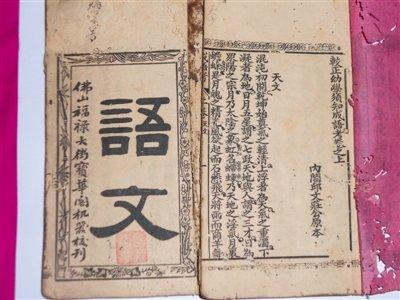 較正幼學須知成語考卷之上
內閣邱文莊公原本
天文
混沌初開乾坤始奠氣之輕清上浮者為天氣之重濁下
凝者為地日月五星謂之七政天地與人謂之三才日為
眾陽之宗月乃太陰之象虹名螮蝀乃天地之淫氣月裏
蟾蜍是月魄之精光風欲起而石燕飛天將雨而商羊
語文
佛山福祿大街寶華閣机器校刊